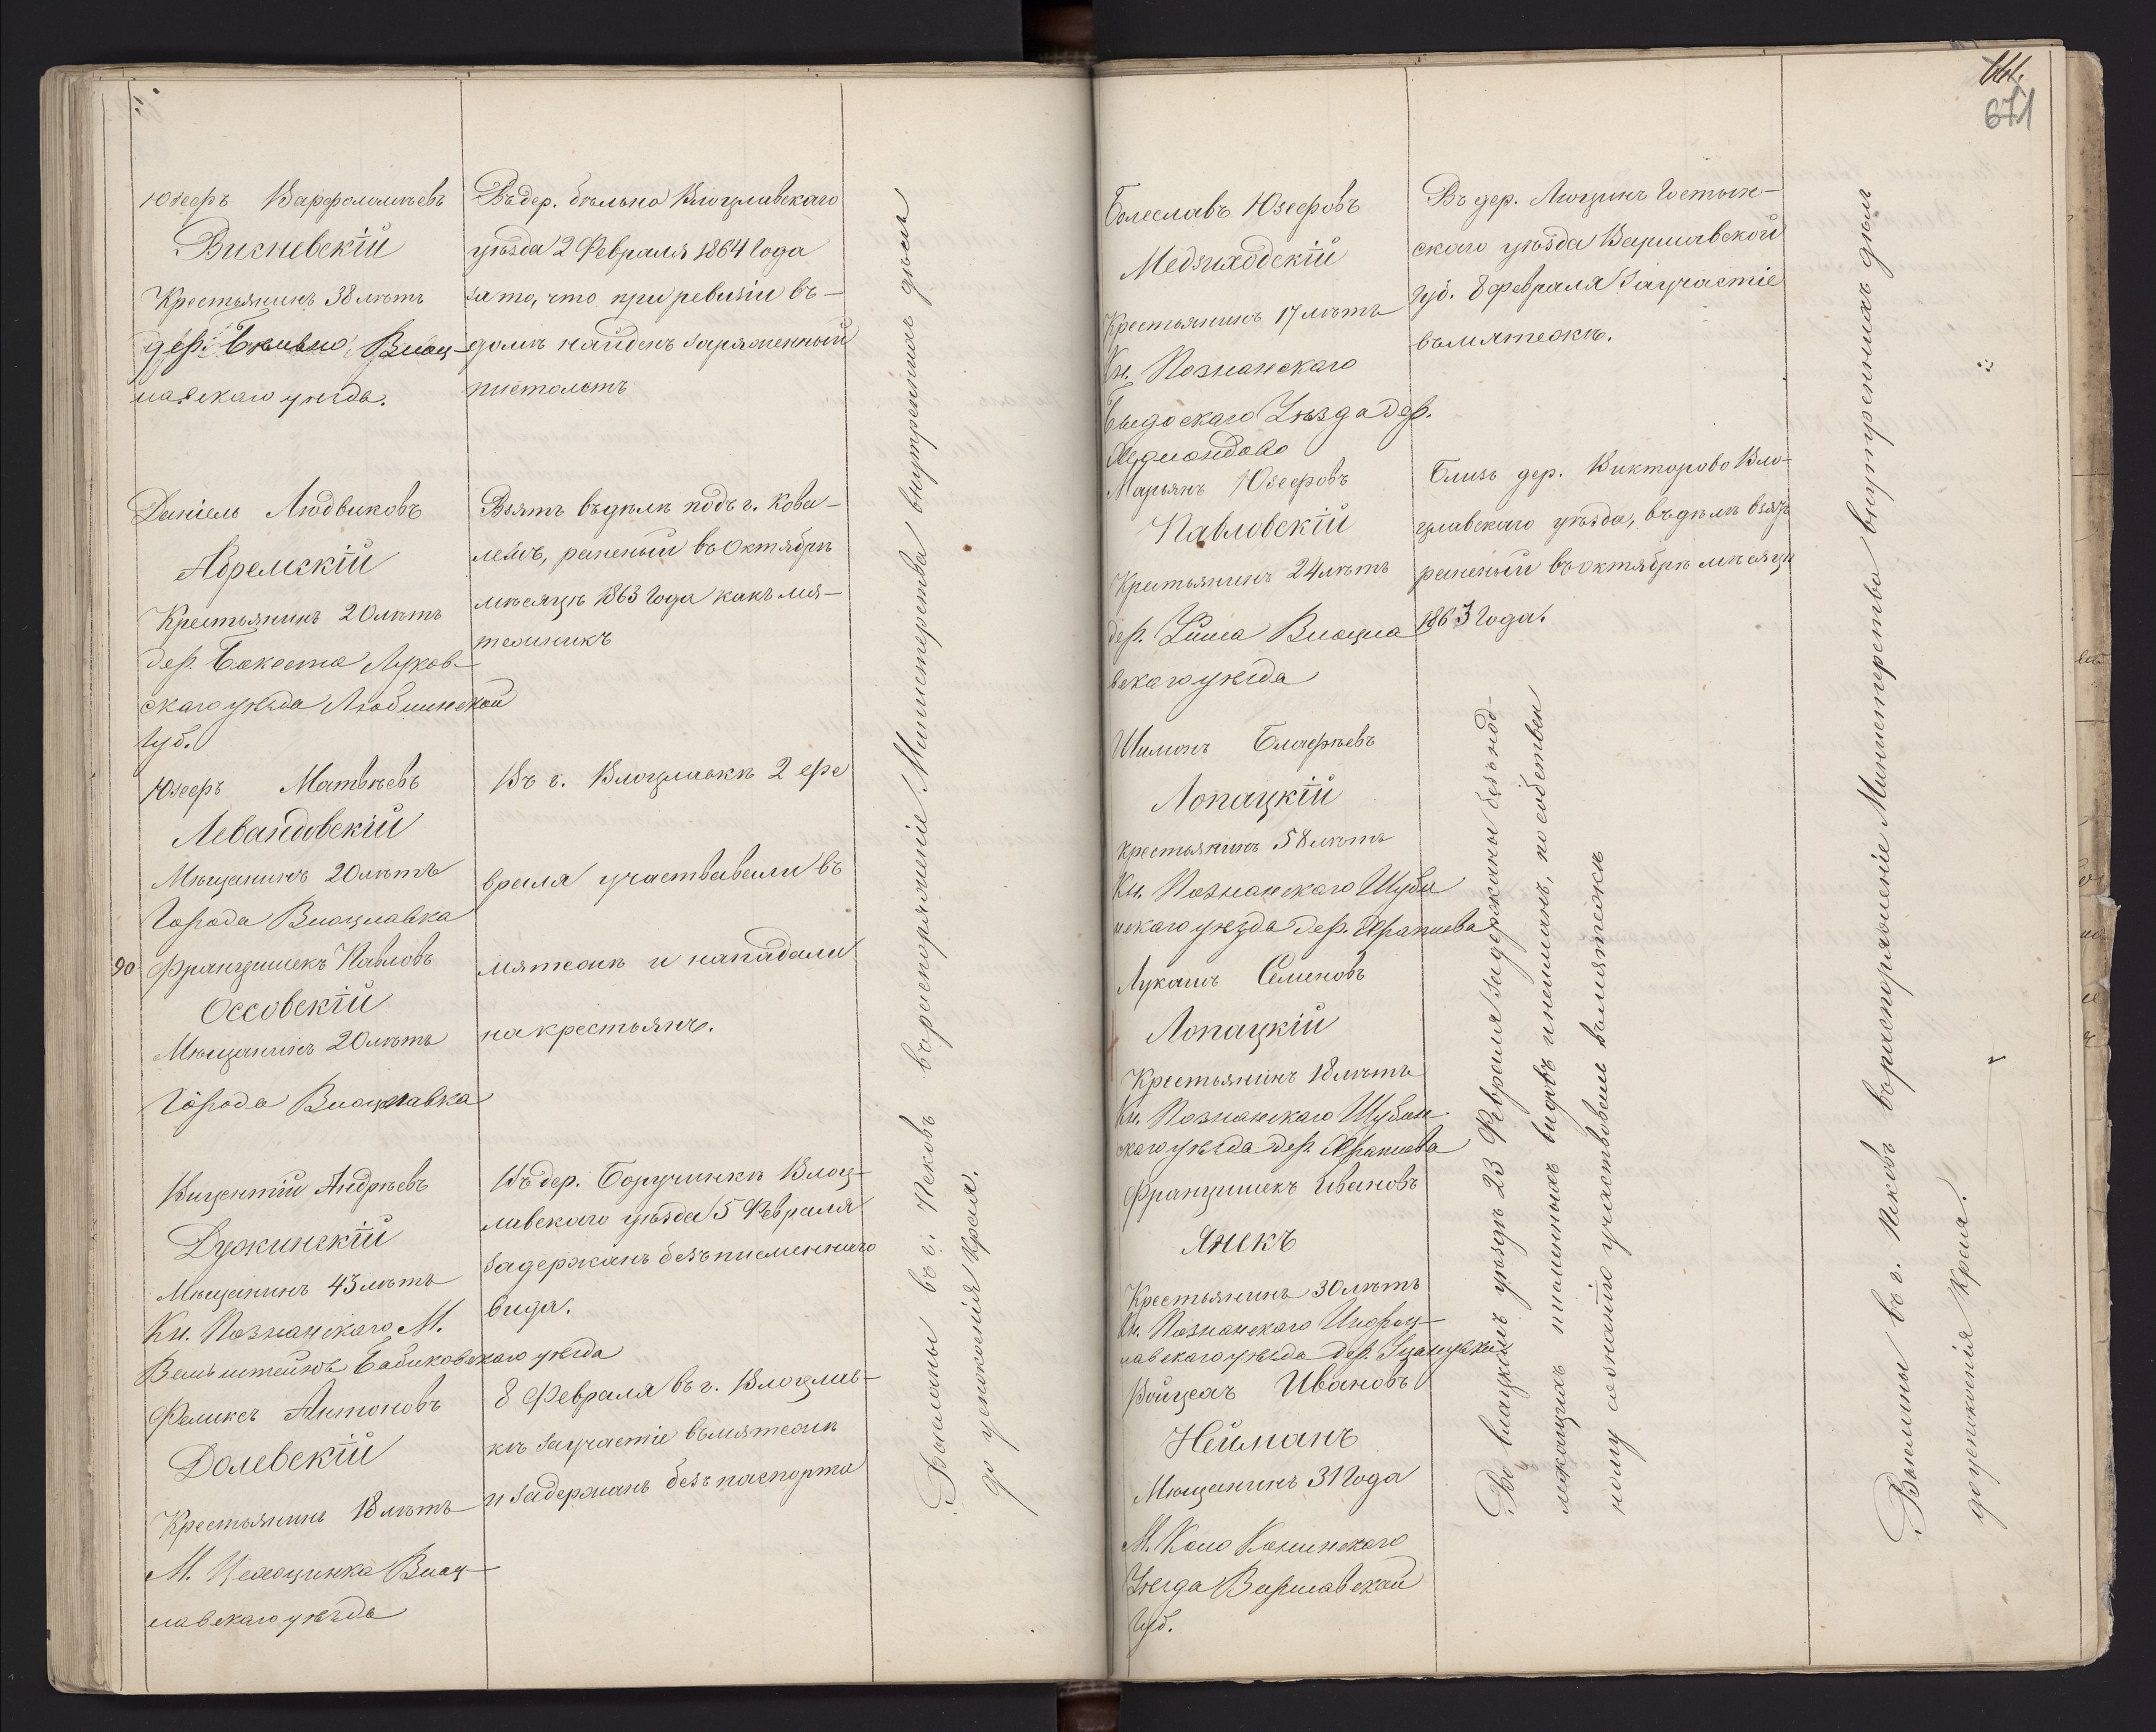 Юзефъ Варфоломѣевъ
Висневскій
Крестьянинъ 38 лѣтъ
дер. Бѣльно Влоц-
лавскаго уѣзда.
Въ дер. бѣльно Влоцлавскаго
уѣзда 2 Февраля 1864 Года
за то, что при ревизіи въ-
домѣ найденъ заряженный
пистолетъ
Даніель Людвиковъ
Абремскій
Крестьянинъ 20 лѣтъ
дер. Луков-
скаго уѣзда Люблинской
Губ.
Взятъ въ дѣлѣ подъ г. Кова-
лемъ, раненый въ Октябрѣ
мѣсяцѣ 1863 Года какъ мя-
тежникъ
Юзефъ Матвѣевъ
Левандовскій
Мѣщанинъ 20 лѣтъ
Города Влоцлавка
90 Францишекъ Павловъ
Оссовскій
Мѣщанинъ 20 лѣтъ
Города Влоцлавка
Въ г. Влоцлавкѣ 2 фе
враля участвавали въ
мятежѣ и нападали
на крестьянъ.
Вицентій Андрѣевъ
Дужинскій
Мѣщанинъ 43 лѣтъ
Кн. Познанскаго М.
Бабиковскаго уѣзда
Въ дер. Боручинкѣ Влоц-
лавскаго уѣзда 5 Февраля
задержанъ безъ писменнаго
вида.
Феликсъ Антоновъ
Долевскій
Крестьянинъ 18 лѣтъ
М. Влоц-
лавскаго уѣзда
8 Февраля въ г. Влоцлав-
кѣ за участіе въ мятежѣ
и задержанъ безъ паспорта
Высланы въ г. Псковъ въ распоряженіе Министерства внутреннихъ дѣлъ
до успокоенія Края.
661.
671
Болеславъ Юзефовъ
Медзиходскій
Крестьянинъ 17 лѣтъ
Кн. Познанскаго
Уѣзда дер.
Въ дер. Люцинъ Гостын-
скаго уѣзда Варшавской
губ. 8 февраля За участіе
въ мятежѣ.
Марьянъ Юзефовъ
Павловскій
Крестьянинъ 24 лѣтъ
дер. Влоцла
вскаго уѣзда
Близь дер. Викторово Вло-
цлавскаго уѣзда, въ дѣлѣ взятъ
раненый въ октябрѣ мѣсяцѣ
1863 Года.
Шимонъ
Лопацкій
Крестьянинъ 58 лѣтъ
Кн. Познанскаго Шуби
нскаго уѣзда дер. Храплева
Лукашъ Семеновъ
Лопацкій
Крестьянинъ 18 лѣтъ
Кн. Познанскаго Шубин-
скаго уѣзда дер. Храплева
Францишекъ Ивановъ
Янекъ
Крестьянинъ 30 лѣтъ
Кн. Познанскаго Иновроц-
лавскаго уѣзда дер.
Войцехъ Ивановъ
Нейманъ
Мѣщанинъ 31 Года
М. Коло Конинскаго
Уѣзда Варшавской
Губ.
Во влацкомъ уѣздѣ 23 Февраля задержаны безъ над-
лежащихъ писменныхъ видовъ и по собствен
ному сознанію участвовали въ мятежѣ
Высланы въ г. Псковъ въ распоряженіе Министерства внутреннихъ дѣлъ
до успокоенія Края.